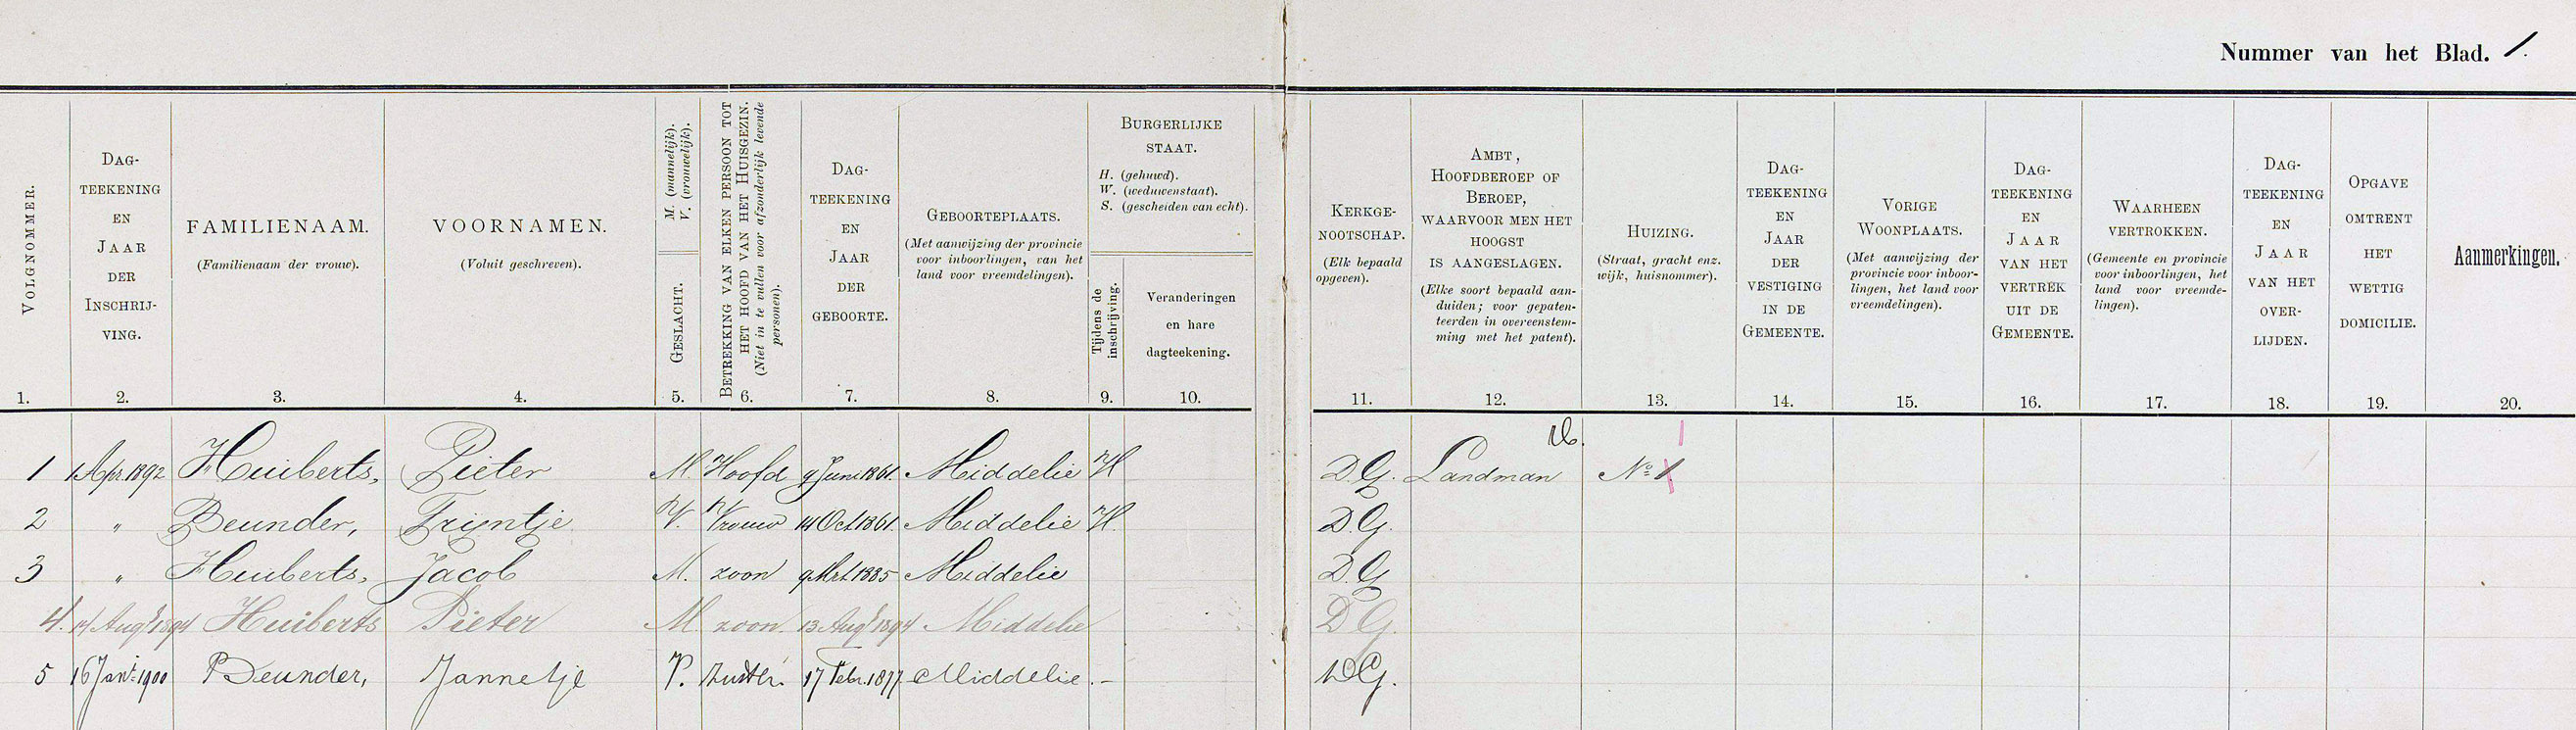 Nummer van het Blad. 1.
VOLGNOMMER.
DAG-
TEEKENING
EN
JAAR
DER
INSCHRIJ-
VING.
FAMILIENAAM.
(Familienaam der vrouw).
VOORNAMEN.
(Voluit geschreven).
M. (mannelijk).
V. (vrouwelijk).
GESLACHT.
BETREKKING VAN ELKEN PERSOON TOT
HET HOOFD VAN HET HUISGEZIN.
(Niet in te vullen voor afzonderlijk levende
personen).
DAG-
TEEKENING
EN
JAAR
DER
GEBOORTE.
GEBOORTEPLAATS.
(Met aanwijzing der provincie
voor inboorlingen, van het
land voor vreemdelingen).
BURGERLIJKE
STAAT.
H. (gehuwd).
W. (weduwenstaat).
S. (gescheiden van echt).
Tijdens de
inschrijving.
Veranderingen
en hare
dagteekening.
KERKGE-
NOOTSCHAP.
(Elk bepaald
opgeven).
AMBT,
HOOFDBEROEP OF
BEROEP,
WAARVOOR MEN HET
HOOGST
IS AANGESLAGEN.
(Elke soort bepaald aan-
duiden; voor gepaten-
teerden in overeenstem-
ming met het patent).
HUIZING.
(Straat, gracht enz.
wijk, huisnommer).
DAG-
TEEKENING
EN
JAAR
DER
VESTIGING
IN DE
GEMEENTE.
VORIGE
WOONPLAATS.
(Met aanwijzing der
provincie voor inboor-
lingen, het land voor
vreemdelingen).
DAG-
TEEKENING
EN
JAAR
VAN HET
VERTREK
UIT DE
GEMEENTE.
WAARHEEN
VERTROKKEN.
(Gemeente en provincie
voor inboorlingen, het
land voor vreemde-
lingen).
DAG-
TEEKENING
EN
JAAR
VAN HET
OVER-
LIJDEN.
OPGAVE
OMTRENT
HET
WETTIG
DOMICILIE.
Aanmerkingen.
1. 2. 3. 4. 5. 6. 7. 8. 9. 10. 11. 12. 13. 14. 15. 16. 17. 18. 19. 20.
1 1 Apr. 1892 Huiberts, Pieter M. Hoofd 9 Juni 1861. Middelie H D.G. Landman No 1 1
2 " Beunder, Trijntje V. Vrouw 14 Oct. 1861. Middelie H. D.G.
3 " Huiberts, Jacob M. zoon 9 Mrt. 1885 Middelie D.G
4. 14 Augs 1894 Huiberts Pieter M. zoon. 13 Augs 1894 Middelie D G.
5 16 Jan. 1900 Beunder, Jannetje V. Zuster. 17 Febr. 1877. Middelie. - DG.